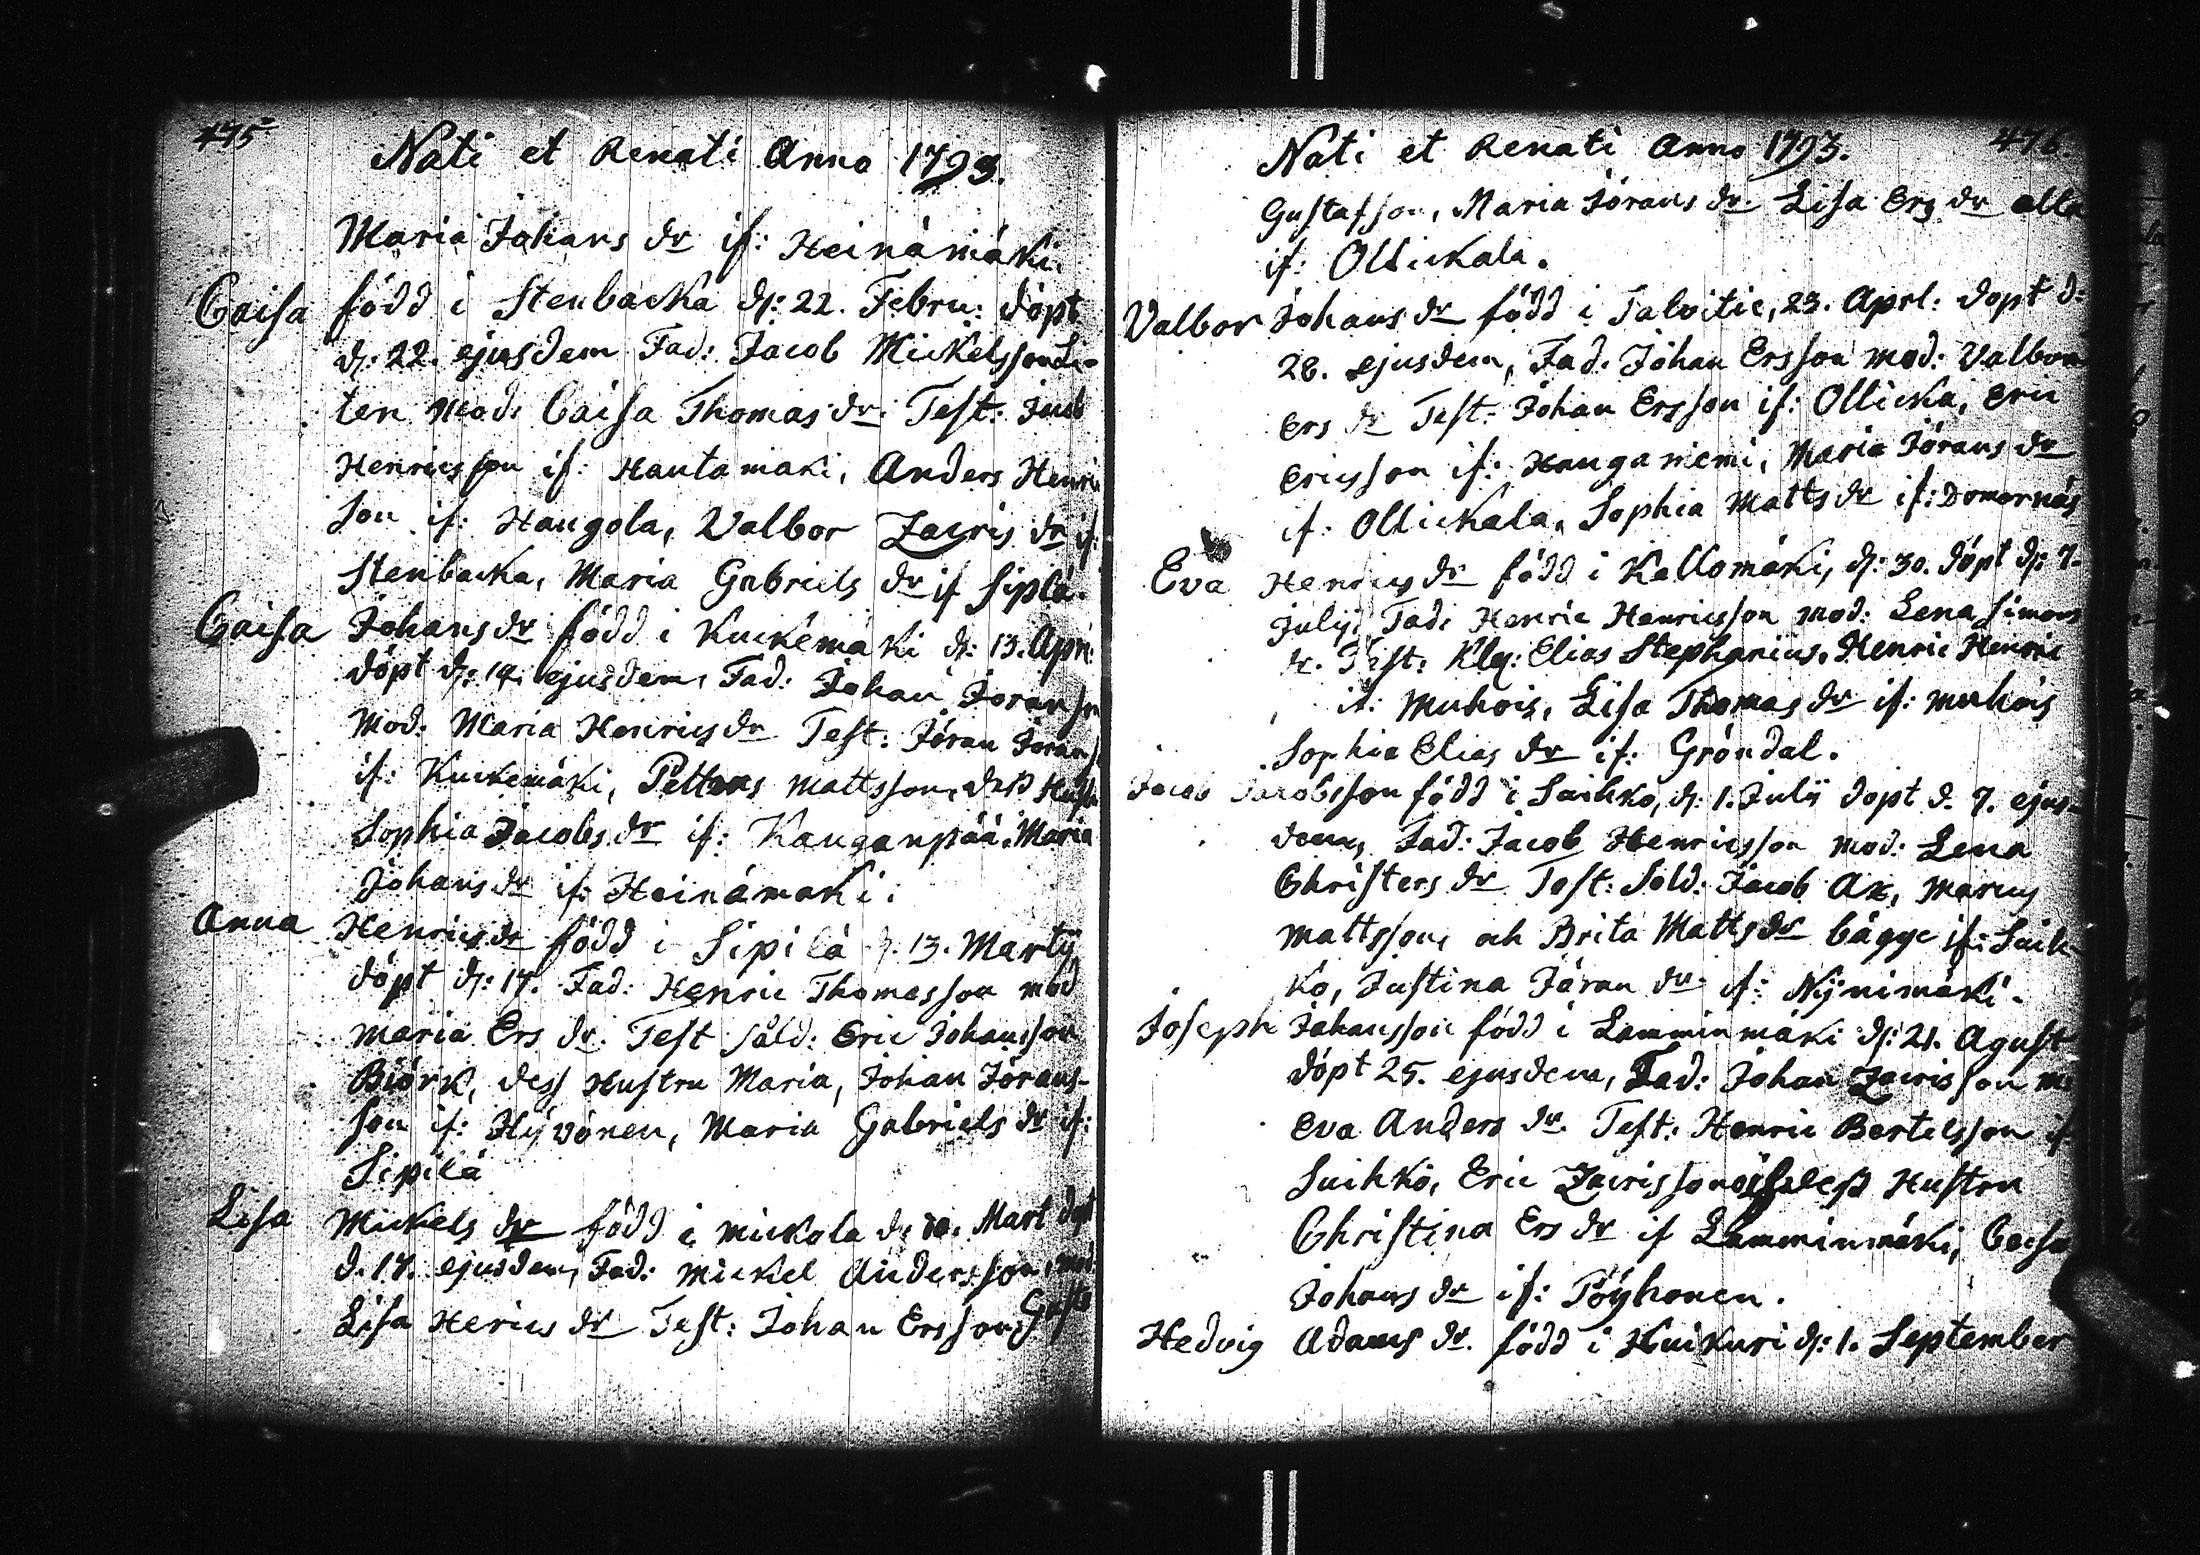 475
Nati et Renati Anno 1793.
Maria Johans dr if: Heinämäki.
Caisa född i Stenbacka d: 22. Febru: döpt
d: 22. ejusdem Fad: Jacob Mickelsson Li-
ten Mod: Caisa Thomas dr Test: Jacob
Henricsson if: Hautamaki, Anders Henric
son if: Haugola, Valbor Zacris dr if:
Stenbacka, Maria Gabriels dr if Siplä.
Caisa Johans dr född i Kuckemäki d: 13. April
döpt d: 14. ejusdem, Fad: Johan Joransson
Mod. Maria Henrics dr Test: Jöran Jorans
if: Kuckemäki, Petter Mattsson, dess Hustru
Sophia Jacobs dr if: Kauganpää, Maria
Johans dr if: Heinämaki.
Anna Henrics dr född i Sipilä d: 13. Martij
döpt d: 17. Fad: Henric Thomasson mod
Maria Ers dr. Test Såld: Eric Johansson
Biörk, dess Hustru Maria, Johan Jörans-
son if: Hyvönen, Maria Gabriels dr if:
Sipilä
Lisa Mickels dr född i Mickola d. Mart döpt
d. 17. ejusdem, Fad: Mickel Andersson, mod
Lisa Herics dr Test: Johan Ersson, Gust
476.
Nati et Renati Anno 1793.
Gustafson, Maria Jörans dr Lisa Ers dr alla
if: Ollickala.
Valbor Johans dr född i Talvitie, 23. Aprl: dopt d:
28. ejusdem, Fad. Johan Ersson mod: Valbor
Ers dr Test: Johan Ersson if: Ollicka, Eric
Ericsson if: Hauganiemi, Maria Jörans dr
if: Ollickala, Sophia Matts dr if: Domarnäs
Eva Henrics dr född i Kallomäki, d: 30. döpt d: 7.
Julij Fad: Henric Henricsson mod: Lena Simons
dr. Test: Klz: Elias Stephanius, Henric Henric
if: Muhois, Lisa Thomas dr if: Muhois
Sophia Elias dr if: Gröndal.
Jacob Jacobsson född i Suihko, d: 1. Julij dopt d. 7. ejus-
dem, Fad: Jacob Henricsson mod: Lena
Christers dr Test: Sold: Jacob Ax, Marcus
Mattsson, och Brita Matts dr bägge if: Suih-
ko, Justina Jöran dr if: Nynimäki.
Joseph Johansson född i Lamminmäki d: 21. Agust
döpt 25. ejusdem, Fad: Johan Zacrisson mo
Eva Anders dr. Test: Henric Bertelsson if
Suihko, Eric Zacrisson dess Hustru
Christina Ers dr if Lamminmäki, Caisa
Johans dr if: Pöyhonen.
Hedvig Adams dr. född i Huikuri d: 1. September